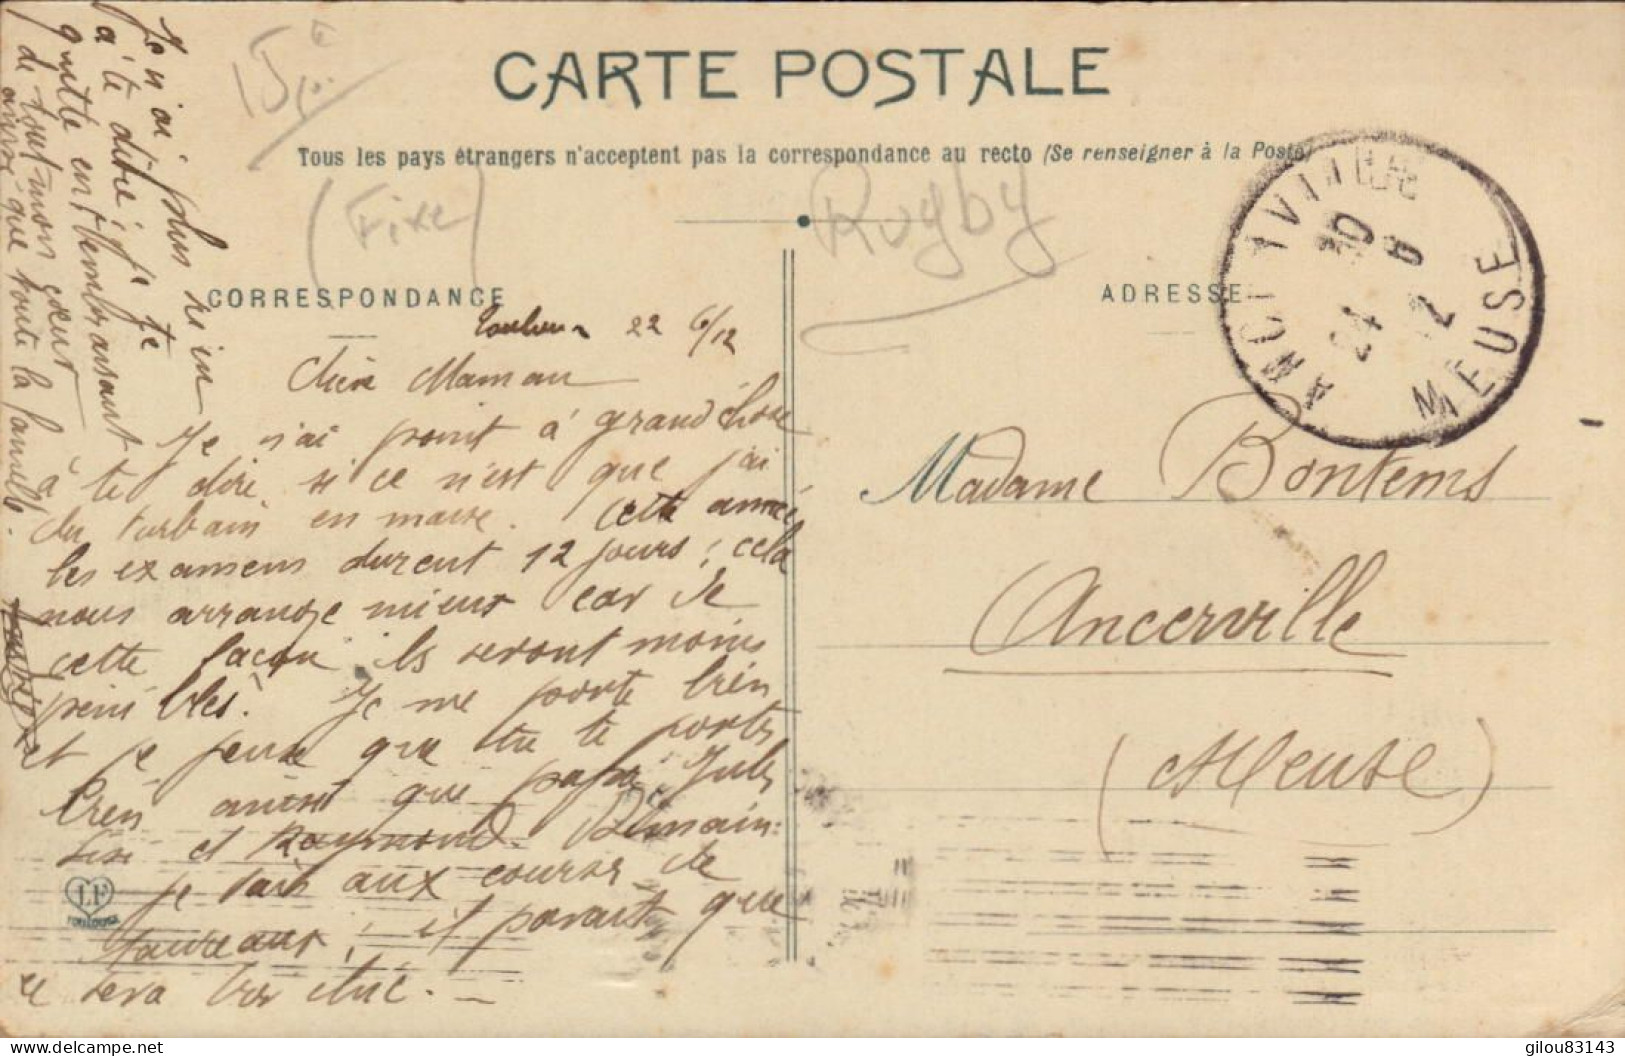 CARTE POSTALE
Tous les pays étrangers n'acceptent pas la correspondance au recto (Se renseigner à la Poste)
(Fixe)
Rugby
CORRESPONDANCE
ADRESSE
22 6/12
Chère Maman
Je n'ai point à grand chose
à te dire si ce n'est que j'ai
du turbain en masse. Cette année
les examens durent 12 jours ; cela
nous arrange mieux car de
cette façon ils seront moins
pénibles. Je me porte bien
et je pense que tu te portes
bien ainsi que papa Jules
et Raymond. Demain
je vais aux courses de
taureaux ; il parait que
ce sera très chic.
Je n'ai plus rien
à te dire, je te
quitte en t'embrassant
de tout mon cœur
ainsi que toute la famille.
Madame Bontems
Ancerville
(Meuse)
ANCERVILLE
24 6 12
MEUSE
LF
TOULOUSE
delcampe.net
gilou83143